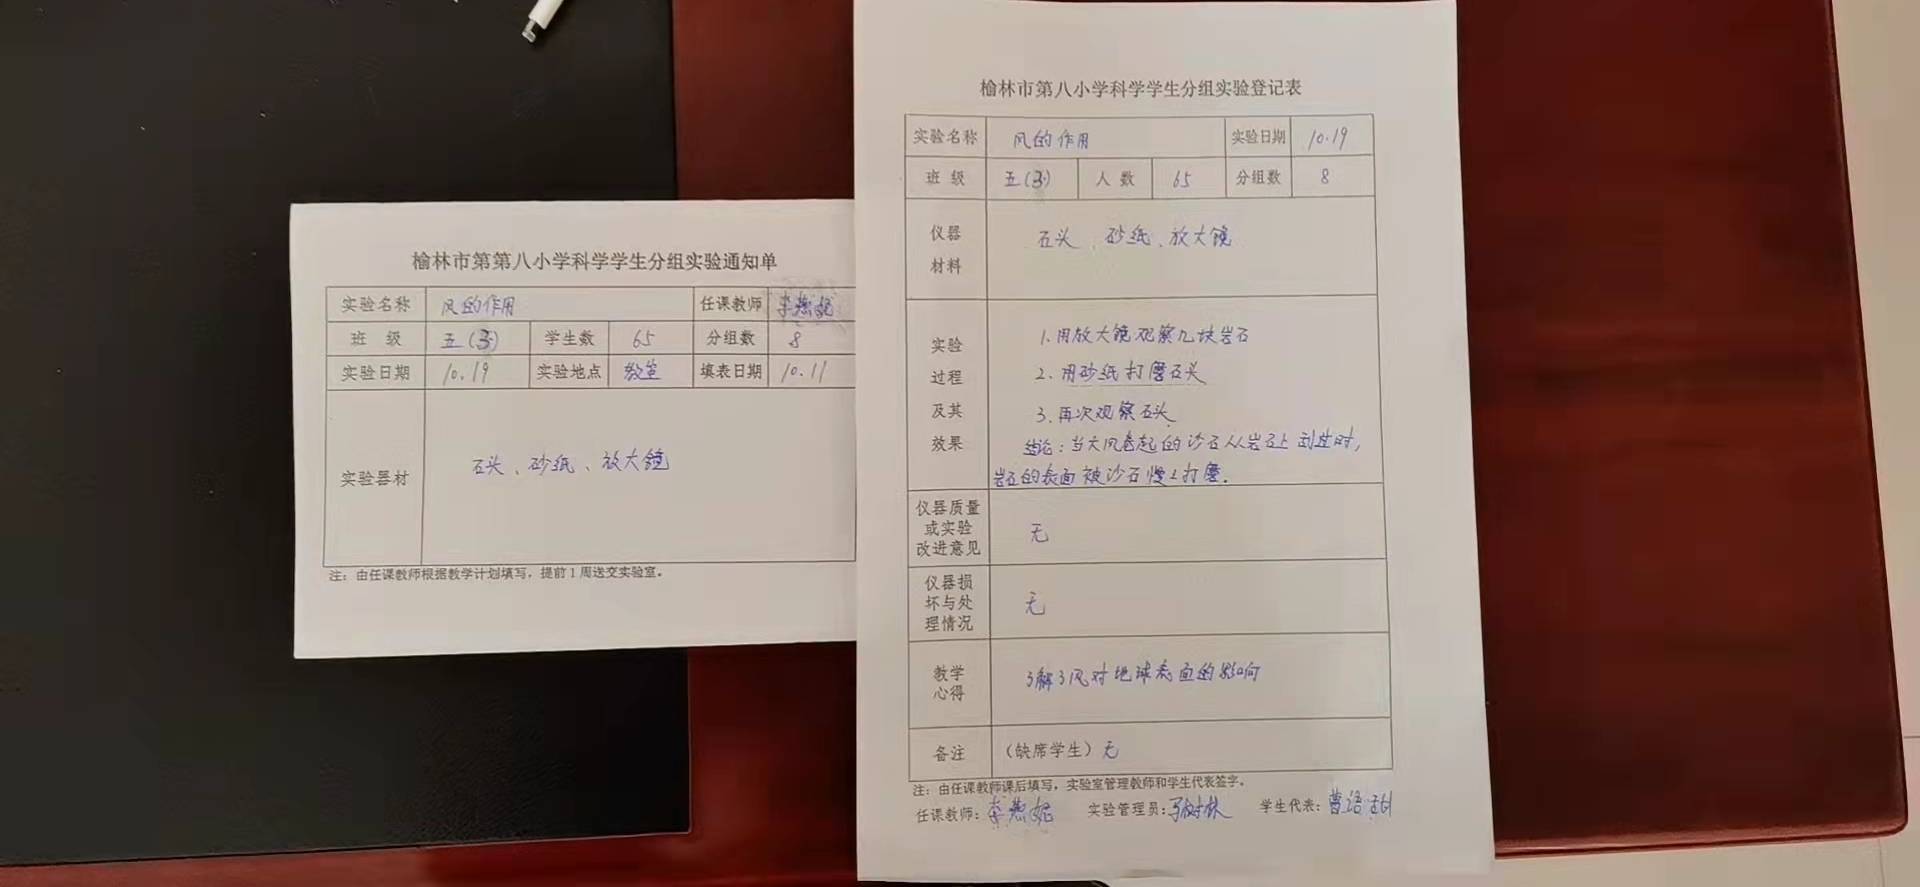 榆林市第第八小学科学学生分组实验通知单
实验名称 风的作用 任课教师 李燕妮
班 级 五(3) 学生数 65 分组数 8
实验日期 10.19 实验地点 教室 填表日期 10.11
实验器材 石头、砂纸、放大镜
注：由任课教师根据教学计划填写，提前1周送交实验室。
榆林市第八小学科学学生分组实验登记表
实验名称 风的作用 实验日期 10.19
班 级 五(3) 人 数 65 分组数 8
仪器
材料
石头、砂纸、放大镜
实验
过程
及其
效果
1.用放大镜观察几块岩石
2.用砂纸打磨石头
3.再次观察石头
结论：当大风卷起的沙石从岩石上刮过时，
岩石的表面被沙石慢慢打磨.
仪器质量
或实验
改进意见
无
仪器损
坏与处
理情况
无
教学
心得
了解了风对地球表面的影响
备注 (缺席学生) 无
注：由任课教师课后填写，实验室管理教师和学生代表签字。
任课教师：李燕妮 实验管理员： 学生代表：